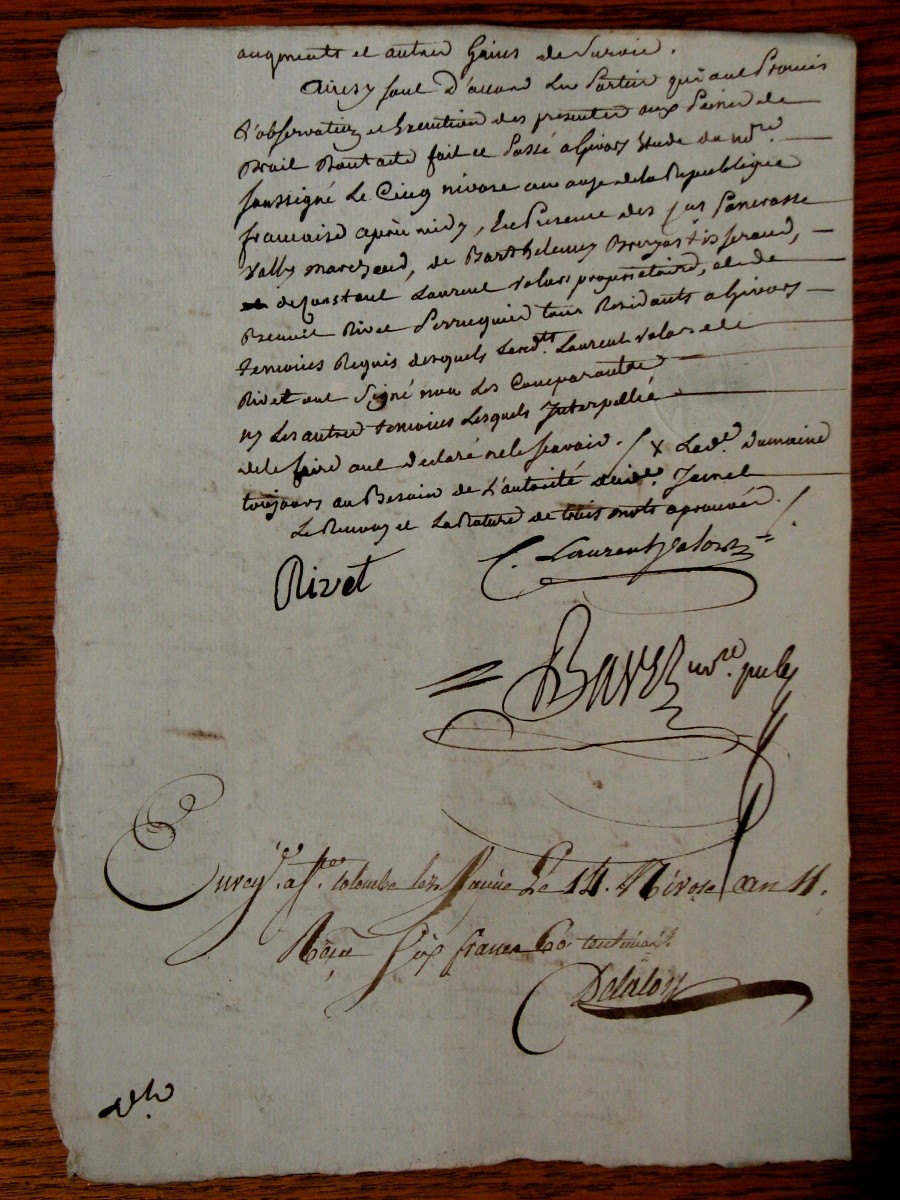 augments et autres Gains de Survie.
Ainsy sont d'accord les Parties qui ont Promis
l'observation et Execution des presentes aux Peines de
Droit Dont acte fait et Passé a Givors Etude du nre.
soussigné Le Cinq nivose an onze de la Republique
francaise après midy, En Presence des srs Pancrasse
Vally marchand, de Barthelemy tisserand,
de Constant Laurent Valors propriétaire, et de
Benoit Rivet Perruquier tous Residants a Givors
temoins Requis desquels Lesdts. Laurent Valors et
Rivet ont Signé non Les Comparants
ny Les autres temoins Lesquels Interpellés
de le faire ont declaré ne le sçavoir. / X Lade. Dumaine
toujours au Besoin de L'autorité dudt. Jamet
Le Renvoy et La Rature de trois mots aprouvés. /
Rivet
C. Laurent Valors
nre. public
Enreg.é a Ste. Colombe Le 14. Nivose an 11.
Reçu Six francs 60 centimes.